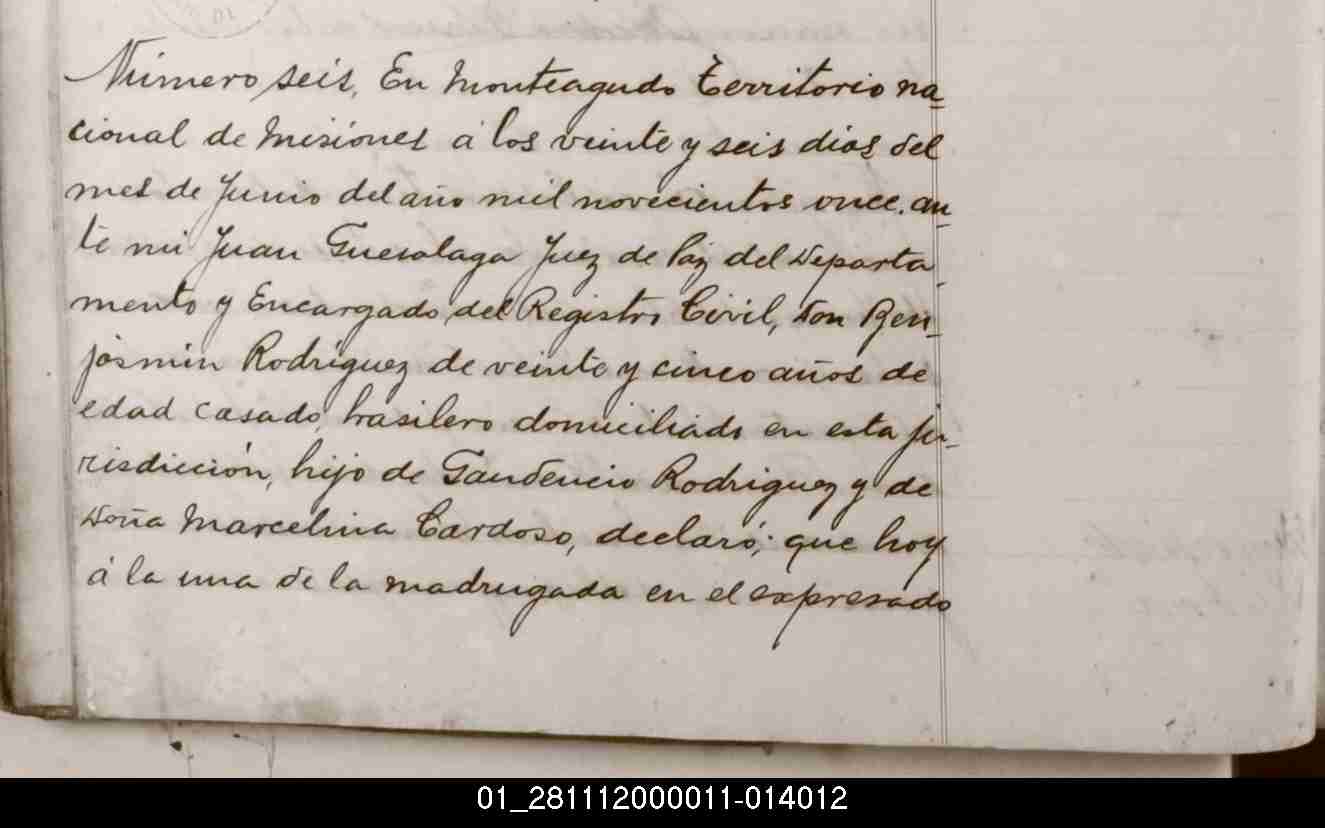 Número seis, En Monteagudo Territorio na-
cional de Misiones á los veinte y seis dias del
mes de Junio del año mil novecientos once. an-
te mi Juan Guesalaga Juez de Páz del Departa-
mento y Encargado del Registro Civil, Don Ben-
jasmin Rodriguez de veinte y cinco años de
edad casado, brasilero domiciliado en esta ju-
risdicción, hijo de Gaudencio Rodriguez y de
Doña Marcelina Cardoso, declaró; que hoy
á la una de la madrugada en el expresado
01_281112000011-014012